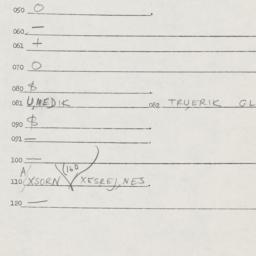 050 O
060 —
061 +
070 O
080 $
081 UMEDIK 082 TRUERIK GL
090 $
091 —
100 —
110 XSORN (160 XESREJ, NES
120 —